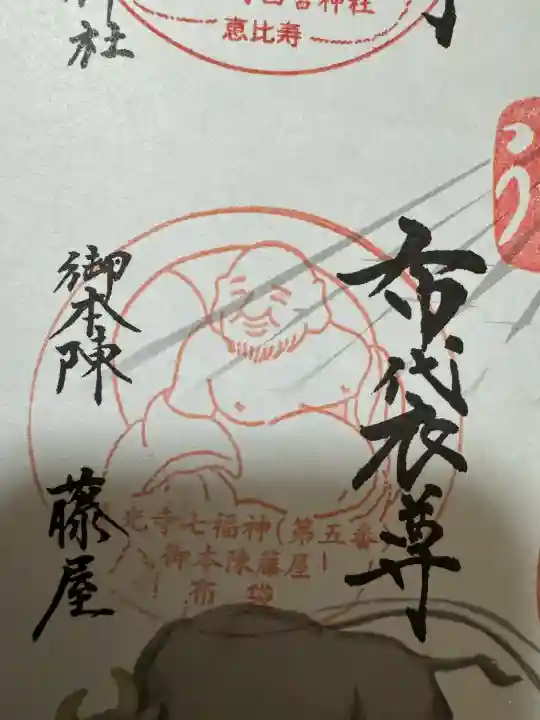 宮神社
恵比寿
神社
う
布袋尊
御本陳 藤屋
光寺七福神(第五番)
御本陳藤屋
布袋